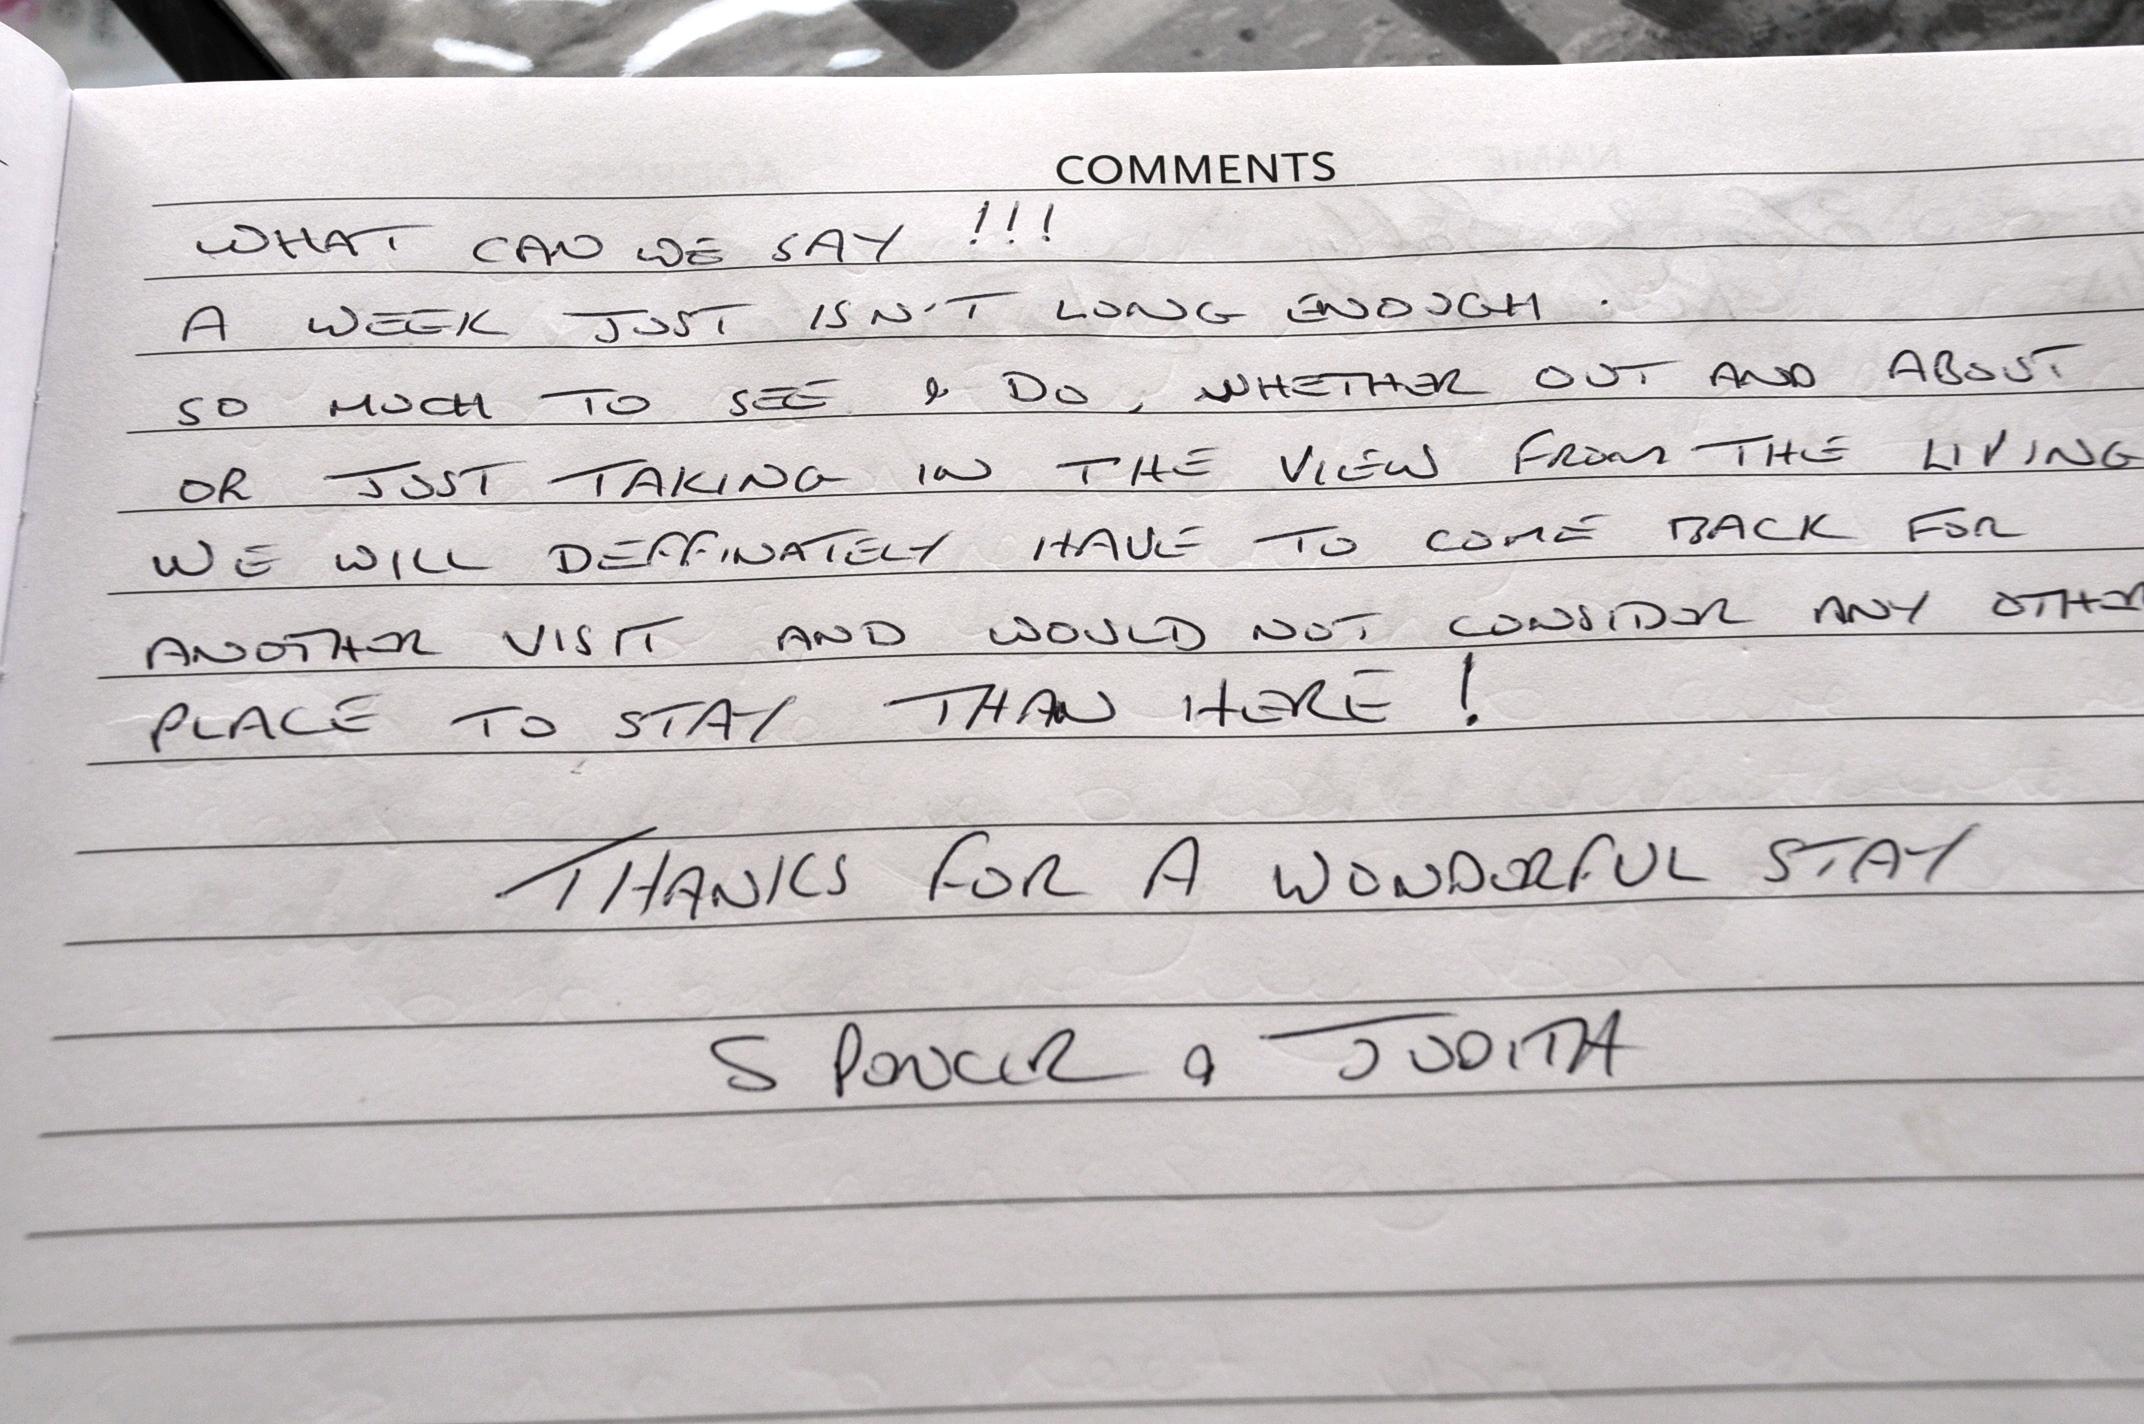 COMMENTS
WHAT CAN WE SAY !!!
A WEEK JUST ISN'T LONG ENOUGH.
SO MUCH TO SEE & DO, WHETHER OUT AND ABOUT
OR JUST TAKING IN THE VIEW FROM THE LIVING
WE WILL DEFFINATELY HAVE TO COME BACK FOR
ANOTHER VISIT AND WOULD NOT CONSIDER ANY OTHER
PLACE TO STAY THAN HERE!
THANKS FOR A WONDERFUL STAY
SPENCER & JUDITH